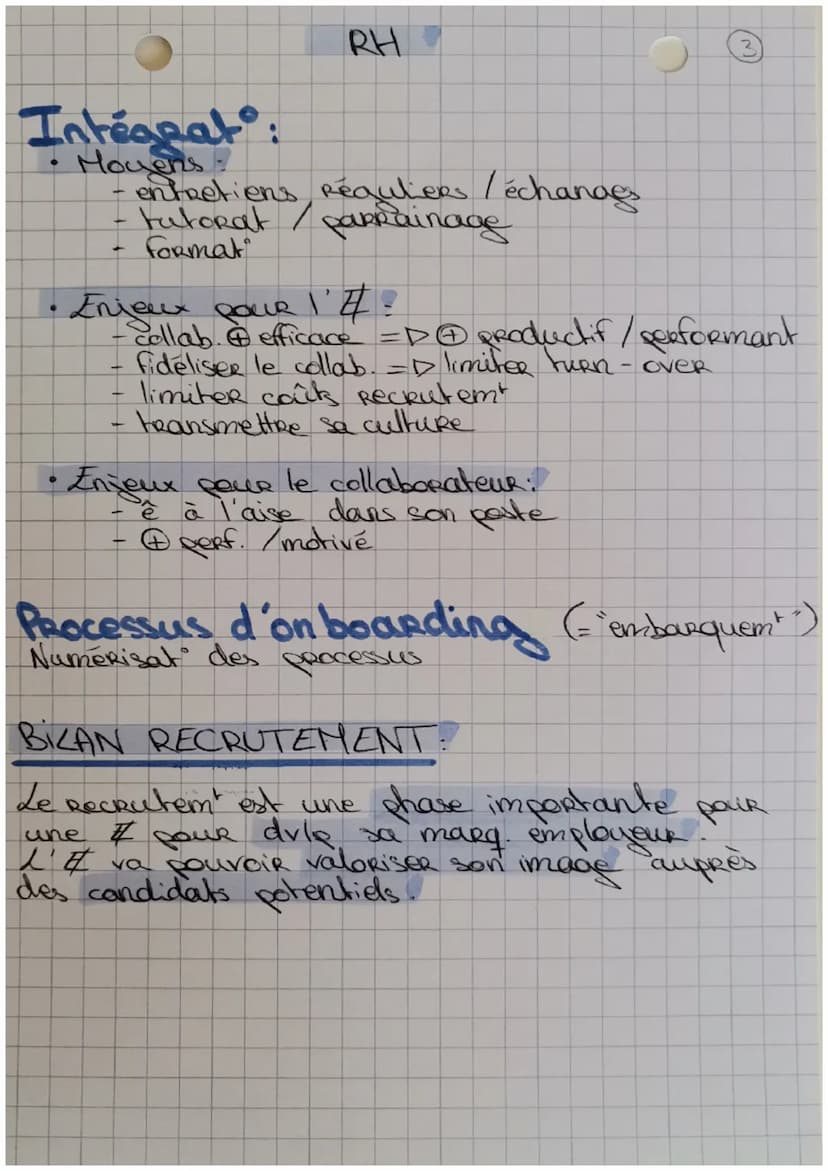 RH
3
Intégrat°:
• Moyens:
- entretiens réguliers / échanges
- tutorat / parrainage
- format°
• Enjeux pour l'E:
- collab. ⊕ efficace => ⊕ productif / performant
- fidéliser le collab. => limiter turn-over
- limiter coûts recrutemt
- transmettre sa culture
• Enjeux pour le collaborateur:
- ê à l'aise dans son poste
- ⊕ perf. / motivé
Processus d'onboarding (= "embarquemt")
Numérisat° des processus
BILAN RECRUTEMENT:
Le recrutemt est une phase importante pour
une E pour dvlp sa marq. employeur.
L'E va pouvoir valoriser son image auprès
des candidats potentiels.